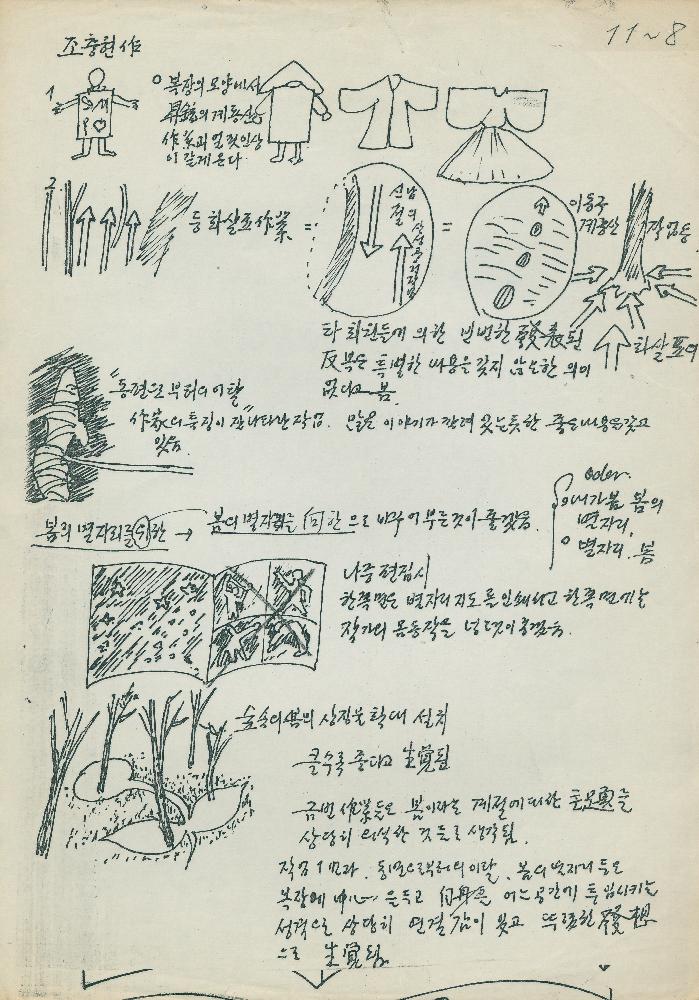 11~8
조충현 作
1
○ 복장의 모양에서
의 계룡산
作業과 얼핏 인상
이 같게 온다
2
등 화살표 作業 =
=
이동구
계룡산 작업등
타 회원들에 의한 빈번한 發表된
反復은 특별한 내용을 갖지 않는한 의미
없다고 봄
화살표의
"동면으로부터의 이탈
作家의 특징이 잘 나타난 작업. 많은 이야기가 깔려 있는듯한 좋은 내용을 갖고
있음.
봄의 별자리를 위한 → 봄의 별자리를 向한 으로 바꾸어 부른것이 좋겠음.
oder.
○ 내가 봄 봄의
별자리.
○ 별자리. 봄
나중 편집시
한쪽면은 별자리 지도를 인쇄하고 한쪽면에는
작가의 몸동작을 넣는것이 좋겠음.
숲속의 봄의 상징물 확대 설치
클수록 좋다고 生覺됨
금번 作業들은 봄이라는 계절에 대한 을
상당히 의식한 것들로 생각됨.
작업 1번과. 동면으로부터의 이탈. 봄의 별자리 등은
복장에 中心을 두고 어느 공간에 투입시키는
성격으로 상당히 연결감이 있고 뚜렷한 發想
으로 生覺됨